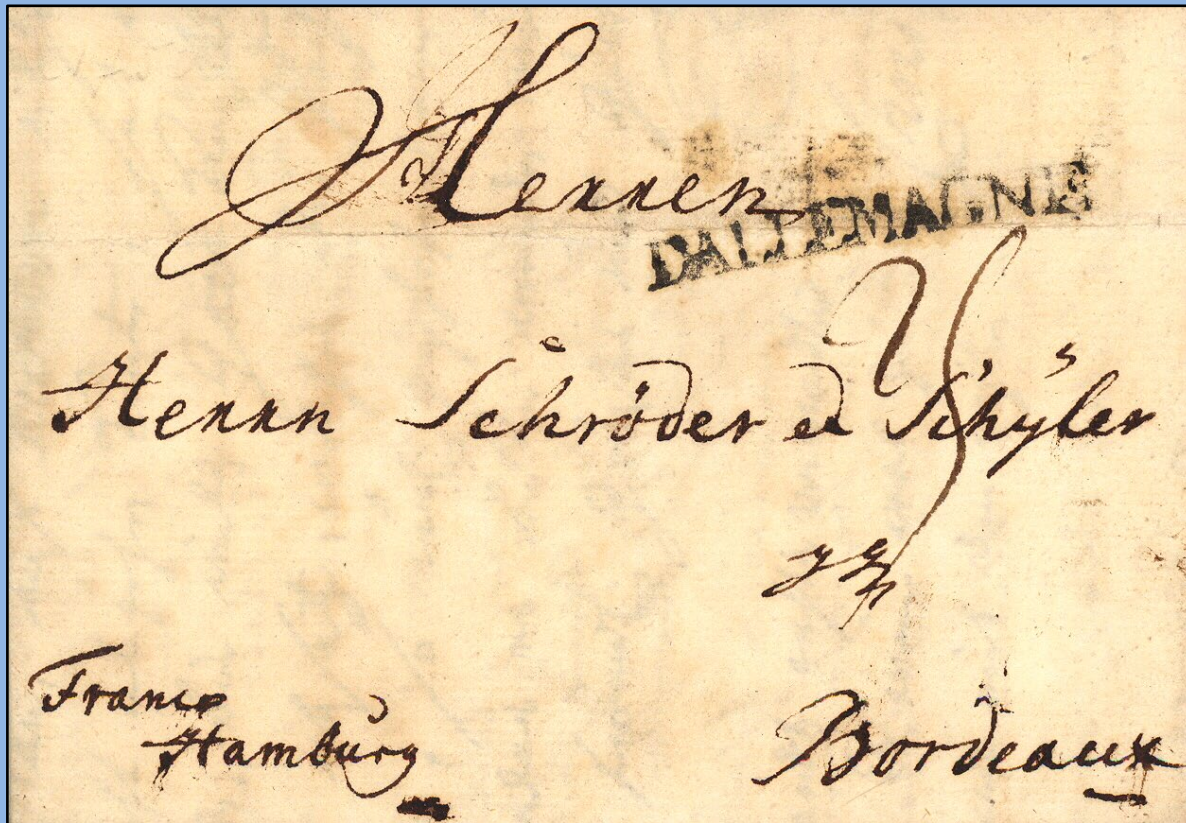 Herren
DALLEMAGNE
Herrn Schröder et Schÿler
Franco
Hamburg
Bordeaux